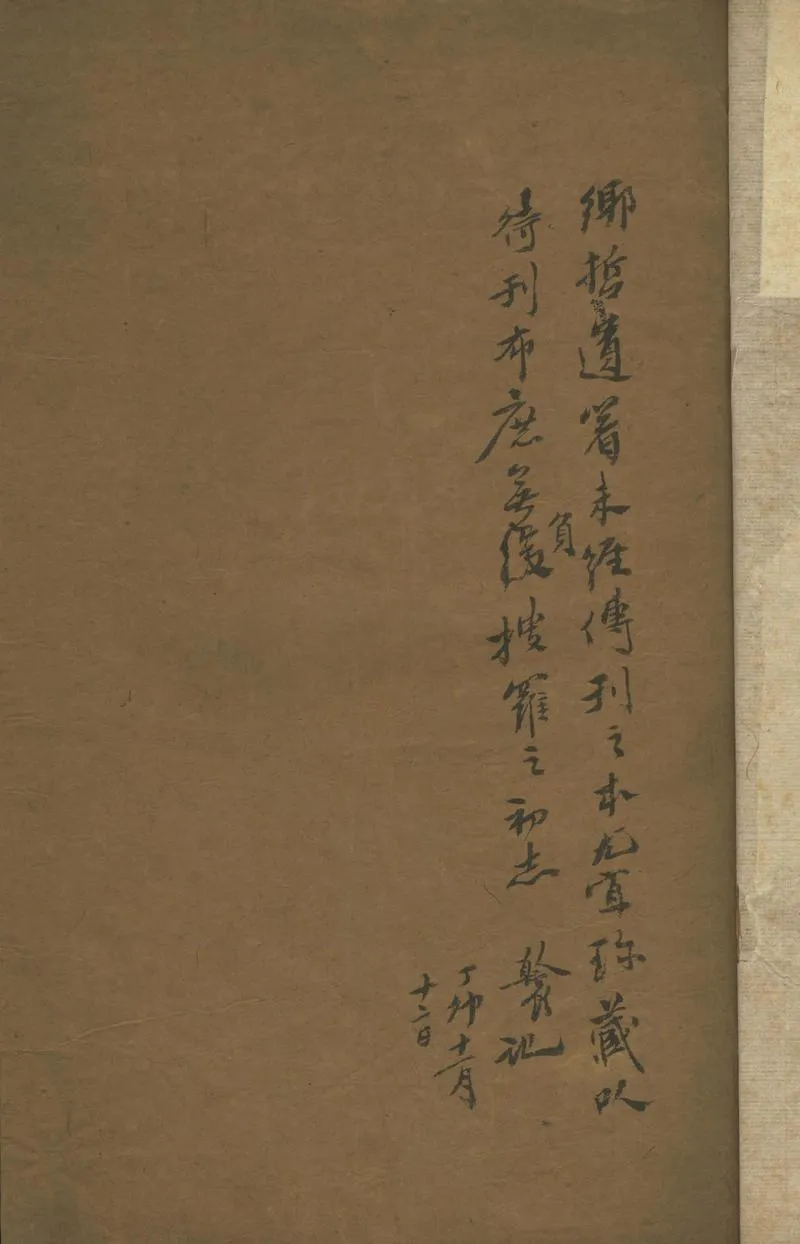 鄉哲遺著未經傳刊之本尤宜珍藏以
待刊布庶無負後搜羅之初志 記
丁卯十一月
十二日